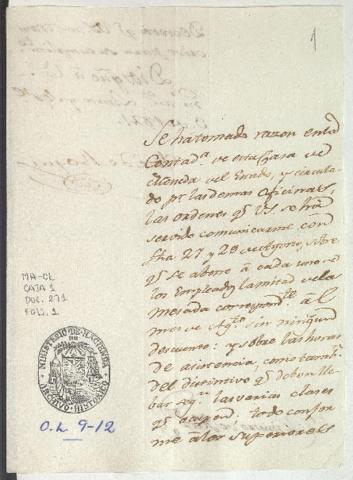 1
Se ha tomado razon en la
Contad.ª de esta Casa de
Moneda del Estado, y circula-
do p.r las demas Oficinas,
las ordenes q.e V.S. se ha
servido comunicarme con
fha 27 y 29 de Agosto, sobre
q.e se abone à cada uno de
los Empleados la mitad de la
mesada correspond.te àl
mes de Ag.to sin ningun
descuento: y sobre las horas
de asistencia, como tamb.n
del distintivo q.e deben lle-
bar seg.n las varias clases
q.e ocupan. todo confor-
me à los Superiores
MA-CL
CAJA 1
DOC. 271
FOLI. 1
MINISTERIO DE HACIENDA
ARCHIVO HISTORICO
O.L. 9-12